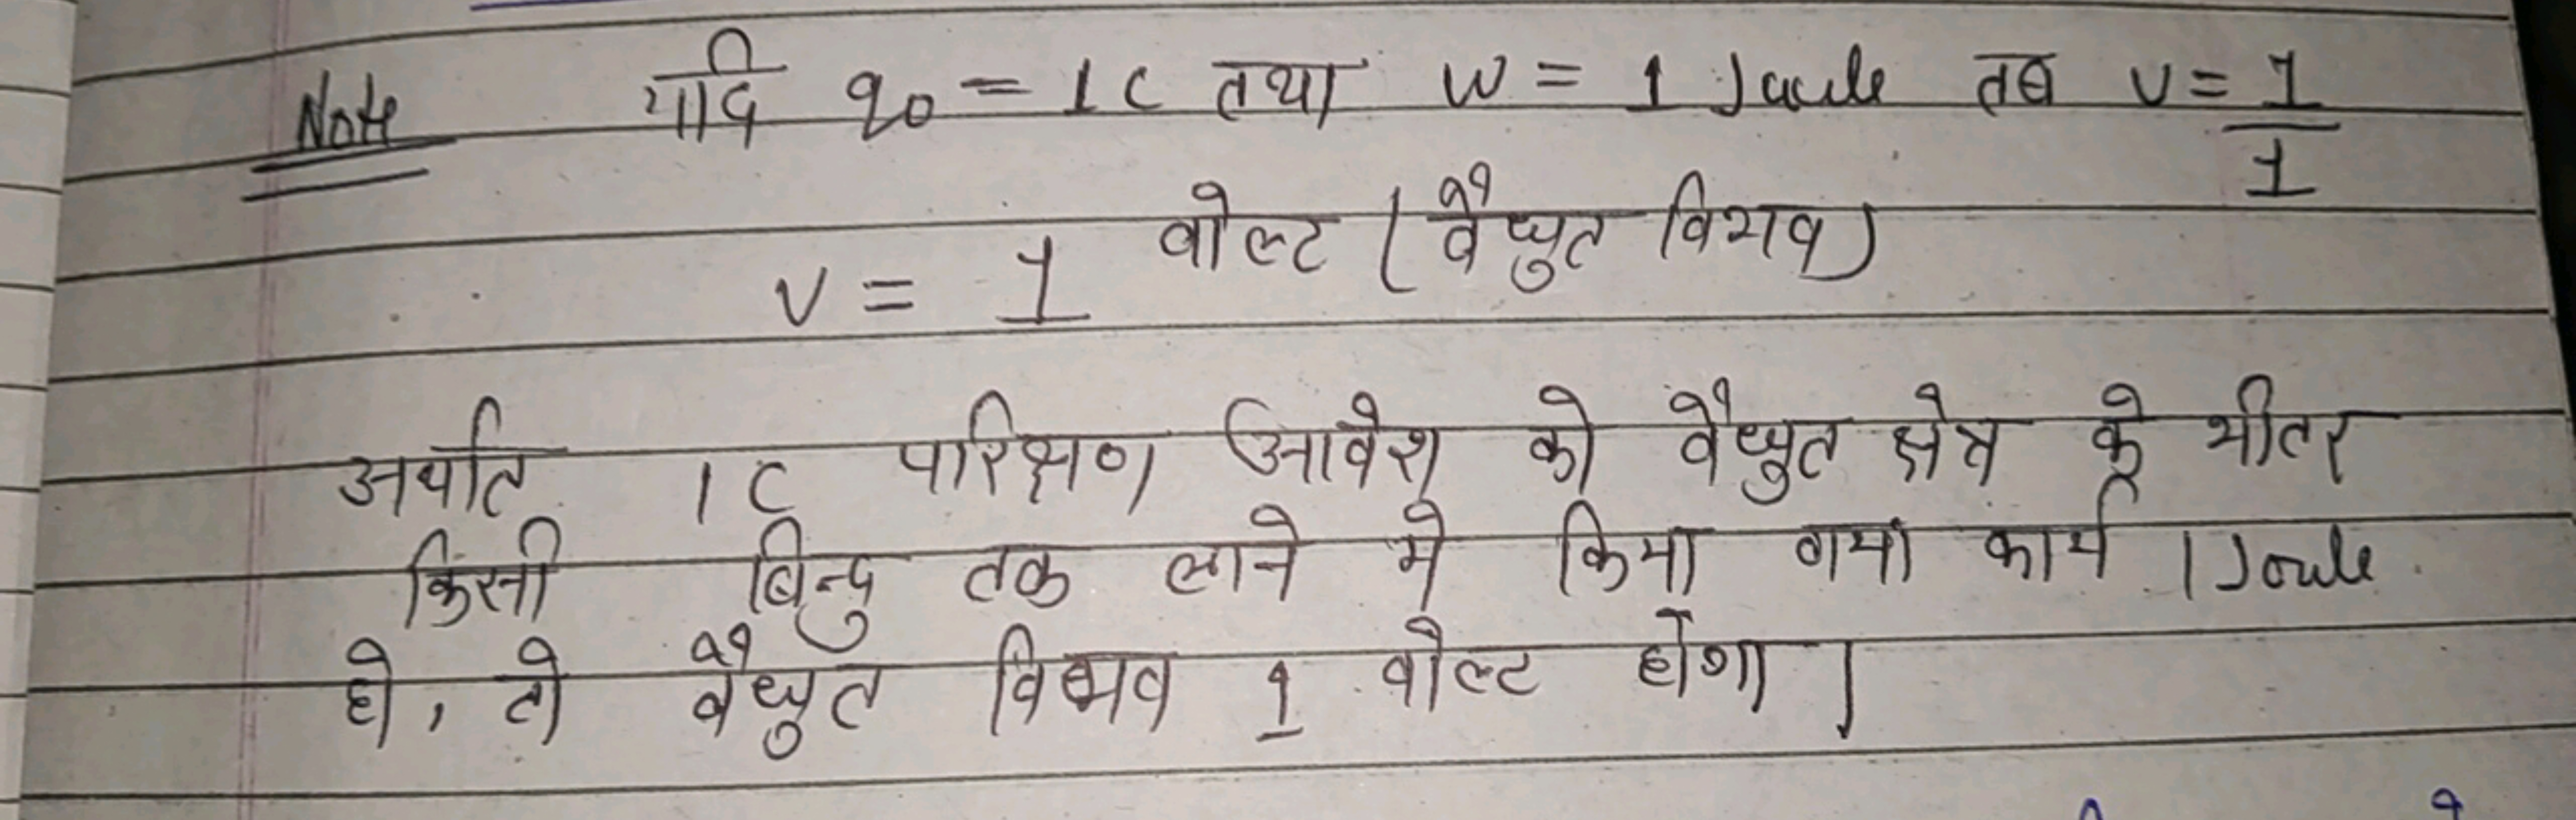 Note यदि q₀ = 1C तथा W = 1 Joule तब V = 1/1
V = 1 वोल्ट (वैधुत विभव)
अर्थात 1 C परिक्षण आवेश को वैधुत क्षेत्र के भीतर
किसी बिन्दु तक लाने मे किया गया कार्य 1 Joule
हो, तो वैधुत विभव 1 वोल्ट होगा।